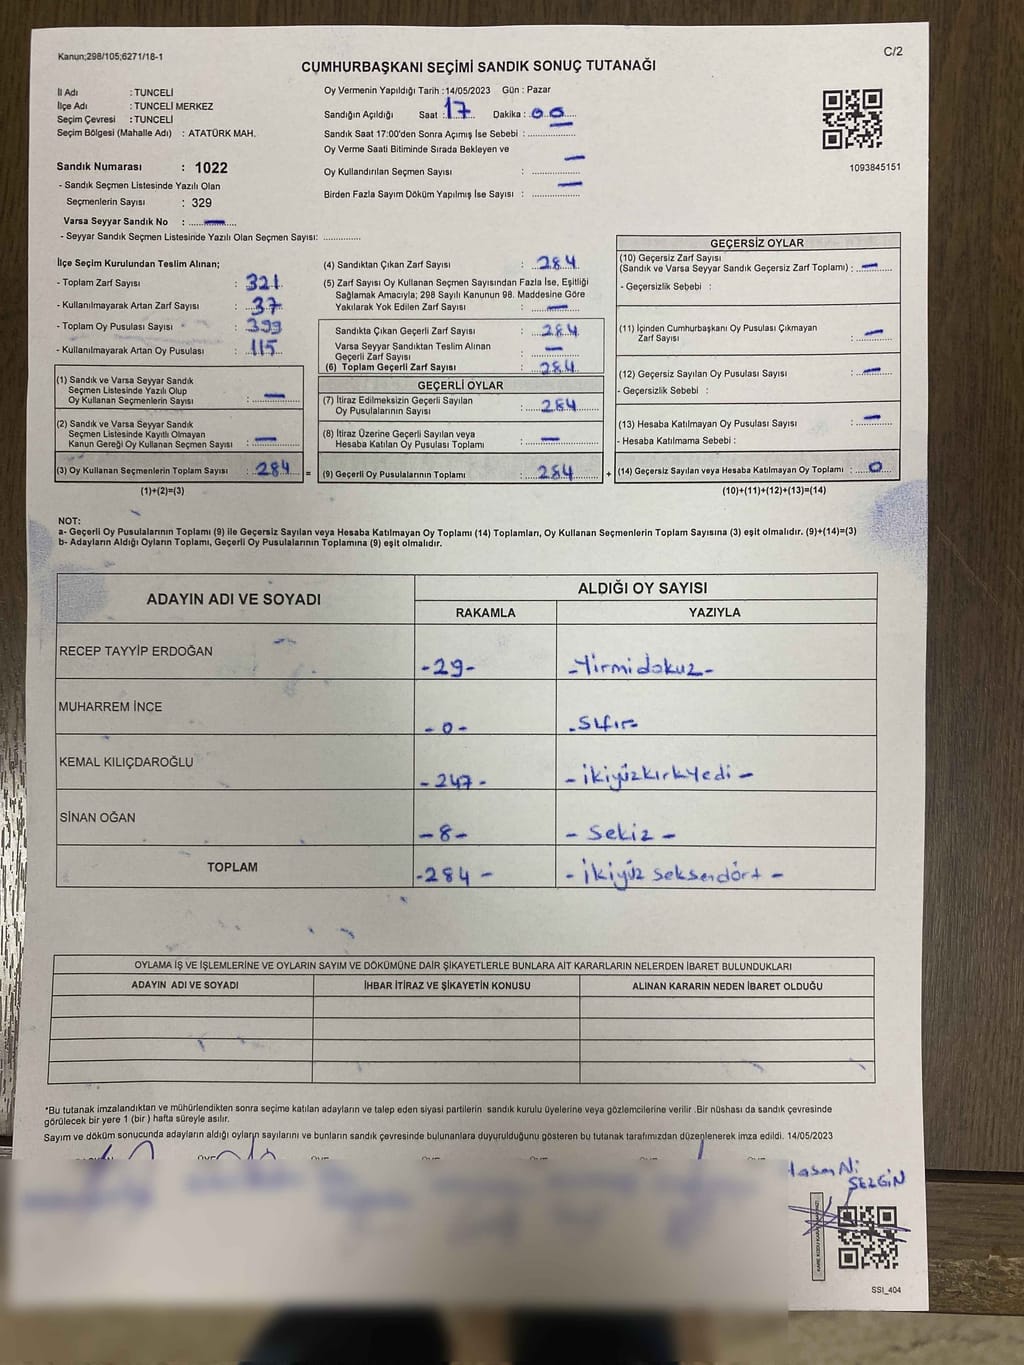 Kanun;298/105;6271/18-1
C/2
CUMHURBAŞKANI SEÇİMİ SANDIK SONUÇ TUTANAĞI
İl Adı : TUNCELİ
İlçe Adı : TUNCELİ MERKEZ
Seçim Çevresi : TUNCELİ
Seçim Bölgesi (Mahalle Adı) : ATATÜRK MAH.
Sandık Numarası : 1022
- Sandık Seçmen Listesinde Yazılı Olan
Seçmenlerin Sayısı : 329
Varsa Seyyar Sandık No : —
- Seyyar Sandık Seçmen Listesinde Yazılı Olan Seçmen Sayısı: ..............
Oy Vermenin Yapıldığı Tarih : 14/05/2023 Gün : Pazar
Sandığın Açıldığı Saat : 17 Dakika : 00
Sandık Saat 17:00'den Sonra Açımış İse Sebebi : ..............
Oy Verme Saati Bitiminde Sırada Bekleyen ve
Oy Kullandırılan Seçmen Sayısı : —
Birden Fazla Sayım Döküm Yapılmış İse Sayısı : —
1093845151
İlçe Seçim Kurulundan Teslim Alınan;
- Toplam Zarf Sayısı : 321
- Kullanılmayarak Artan Zarf Sayısı : 37
- Toplam Oy Pusulası Sayısı : 399
- Kullanılmayarak Artan Oy Pusulası : 115
(1) Sandık ve Varsa Seyyar Sandık
Seçmen Listesinde Yazılı Olup
Oy Kullanan Seçmenlerin Sayısı : —
(2) Sandık ve Varsa Seyyar Sandık
Seçmen Listesinde Kayıtlı Olmayan
Kanun Gereği Oy Kullanan Seçmen Sayısı : —
(3) Oy Kullanan Seçmenlerin Toplam Sayısı : 284 =
(1)+(2)=(3)
(4) Sandıktan Çıkan Zarf Sayısı : 284
(5) Zarf Sayısı Oy Kullanan Seçmen Sayısından Fazla İse, Eşitliği
Sağlamak Amacıyla; 298 Sayılı Kanunun 98. Maddesine Göre
Yakılarak Yok Edilen Zarf Sayısı : —
Sandıkta Çıkan Geçerli Zarf Sayısı : 284
Varsa Seyyar Sandıktan Teslim Alınan
Geçerli Zarf Sayısı : —
(6) Toplam Geçerli Zarf Sayısı : 284
GEÇERLİ OYLAR
(7) İtiraz Edilmeksizin Geçerli Sayılan
Oy Pusulalarının Sayısı : 284
(8) İtiraz Üzerine Geçerli Sayılan veya
Hesaba Katılan Oy Pusulası Toplamı : —
(9) Geçerli Oy Pusulalarının Toplamı : 284 +
GEÇERSİZ OYLAR
(10) Geçersiz Zarf Sayısı
(Sandık ve Varsa Seyyar Sandık Geçersiz Zarf Toplamı) : —
- Geçersizlik Sebebi :
(11) İçinden Cumhurbaşkanı Oy Pusulası Çıkmayan
Zarf Sayısı : —
(12) Geçersiz Sayılan Oy Pusulası Sayısı : —
- Geçersizlik Sebebi :
(13) Hesaba Katılmayan Oy Pusulası Sayısı : —
- Hesaba Katılmama Sebebi :
(14) Geçersiz Sayılan veya Hesaba Katılmayan Oy Toplamı : 0
(10)+(11)+(12)+(13)=(14)
NOT:
a- Geçerli Oy Pusulalarının Toplamı (9) ile Geçersiz Sayılan veya Hesaba Katılmayan Oy Toplamı (14) Toplamları, Oy Kullanan Seçmenlerin Toplam Sayısına (3) eşit olmalıdır. (9)+(14)=(3)
b- Adayların Aldığı Oyların Toplamı, Geçerli Oy Pusulalarının Toplamına (9) eşit olmalıdır.
ADAYIN ADI VE SOYADI
ALDIĞI OY SAYISI
RAKAMLA YAZIYLA
RECEP TAYYİP ERDOĞAN -29- -Yirmidokuz-
MUHARREM İNCE -0- -Sıfır-
KEMAL KILIÇDAROĞLU -247- -ikiyüzkırkyedi-
SİNAN OĞAN -8- -Sekiz-
TOPLAM -284- -ikiyüz seksendört-
OYLAMA İŞ VE İŞLEMLERİNE VE OYLARIN SAYIM VE DÖKÜMÜNE DAİR ŞİKAYETLERLE BUNLARA AİT KARARLARIN NELERDEN İBARET BULUNDUKLARI
ADAYIN ADI VE SOYADI İHBAR İTİRAZ VE ŞİKAYETİN KONUSU ALINAN KARARIN NEDEN İBARET OLDUĞU
*Bu tutanak imzalandıktan ve mühürlendikten sonra seçime katılan adayların ve talep eden siyasi partilerin sandık kurulu üyelerine veya gözlemcilerine verilir .Bir nüshası da sandık çevresinde
görülecek bir yere 1 (bir ) hafta süreyle asılır.
Sayım ve döküm sonucunda adayların aldığı oyların sayılarını ve bunların sandık çevresinde bulunanlara duyurulduğunu gösteren bu tutanak tarafımızdan düzenlenerek imza edildi. 14/05/2023
SEZGİN
SSI_404